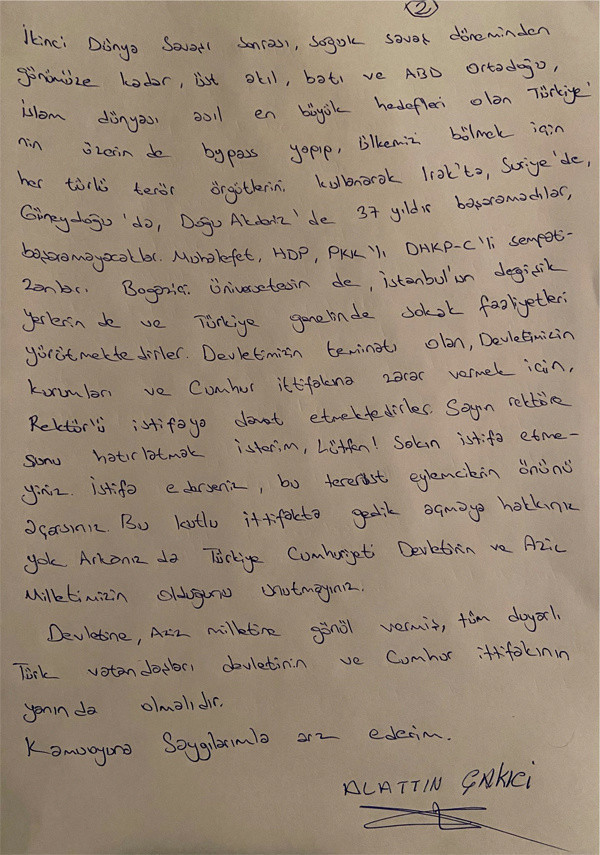 2
İkinci Dünya Savaşı sonrası, soğuk savaş döneminden
günümüze kadar, üst akıl, batı ve ABD Ortadoğu,
İslam dünyası asıl en büyük hedefleri olan Türkiye'
nin üzerin de bypass yapıp, ülkemizi bölmek için
her türlü terör örgütlerini kullanarak Irak'ta, Suriye'de,
Güneydoğu'da, Doğu Akdeniz'de 37 yıldır başaramadılar,
başaramayacaklar. Muhalefet, HDP, PKK'lı DHKP-C'li sempati-
zanları. Boğaziçi Üniversitesin de, İstanbul'un değişik
yerlerin de ve Türkiye genelinde sokak faaliyetleri
yürütmektedirler. Devletimizin teminatı olan, Devletimizin
kurumları ve Cumhur ittifakına zarar vermek için,
Rektör'ü istifaya davet etmektedirler. Sayın rektöre
şunu hatırlatmak isterim, Lütfen! Sakın istifa etme-
yiniz. İstifa ederseniz, bu terörist eylemcilerin önünü
açarsınız. Bu kutlu ittifakta gedik açmaya hakkınız
yok. Arkanız da Türkiye Cumhuriyeti Devletinin ve Aziz
Milletimizin olduğunu unutmayınız.
Devletine, Aziz milletine gönül vermiş, tüm duyarlı
Türk vatandaşları devletinin ve Cumhur ittifakının
yanında olmalıdır.
Kamuoyuna Saygılarımla arz ederim.
ALATTİN ÇAKICI